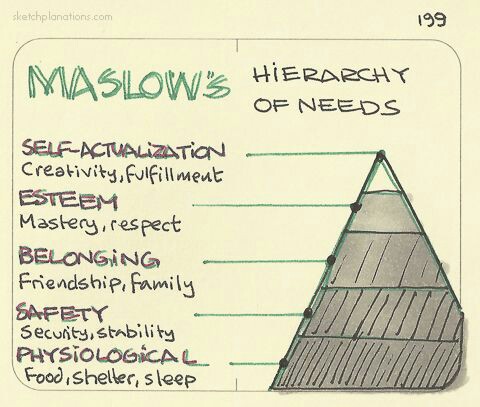 sketchplanations.com
199
MASLOW'S HIERARCHY
OF NEEDS
SELF-ACTUALIZATION
Creativity, fulfillment
ESTEEM
Mastery, respect
BELONGING
Friendship, family
SAFETY
Security, stability
PHYSIOLOGICAL
Food, shelter, sleep